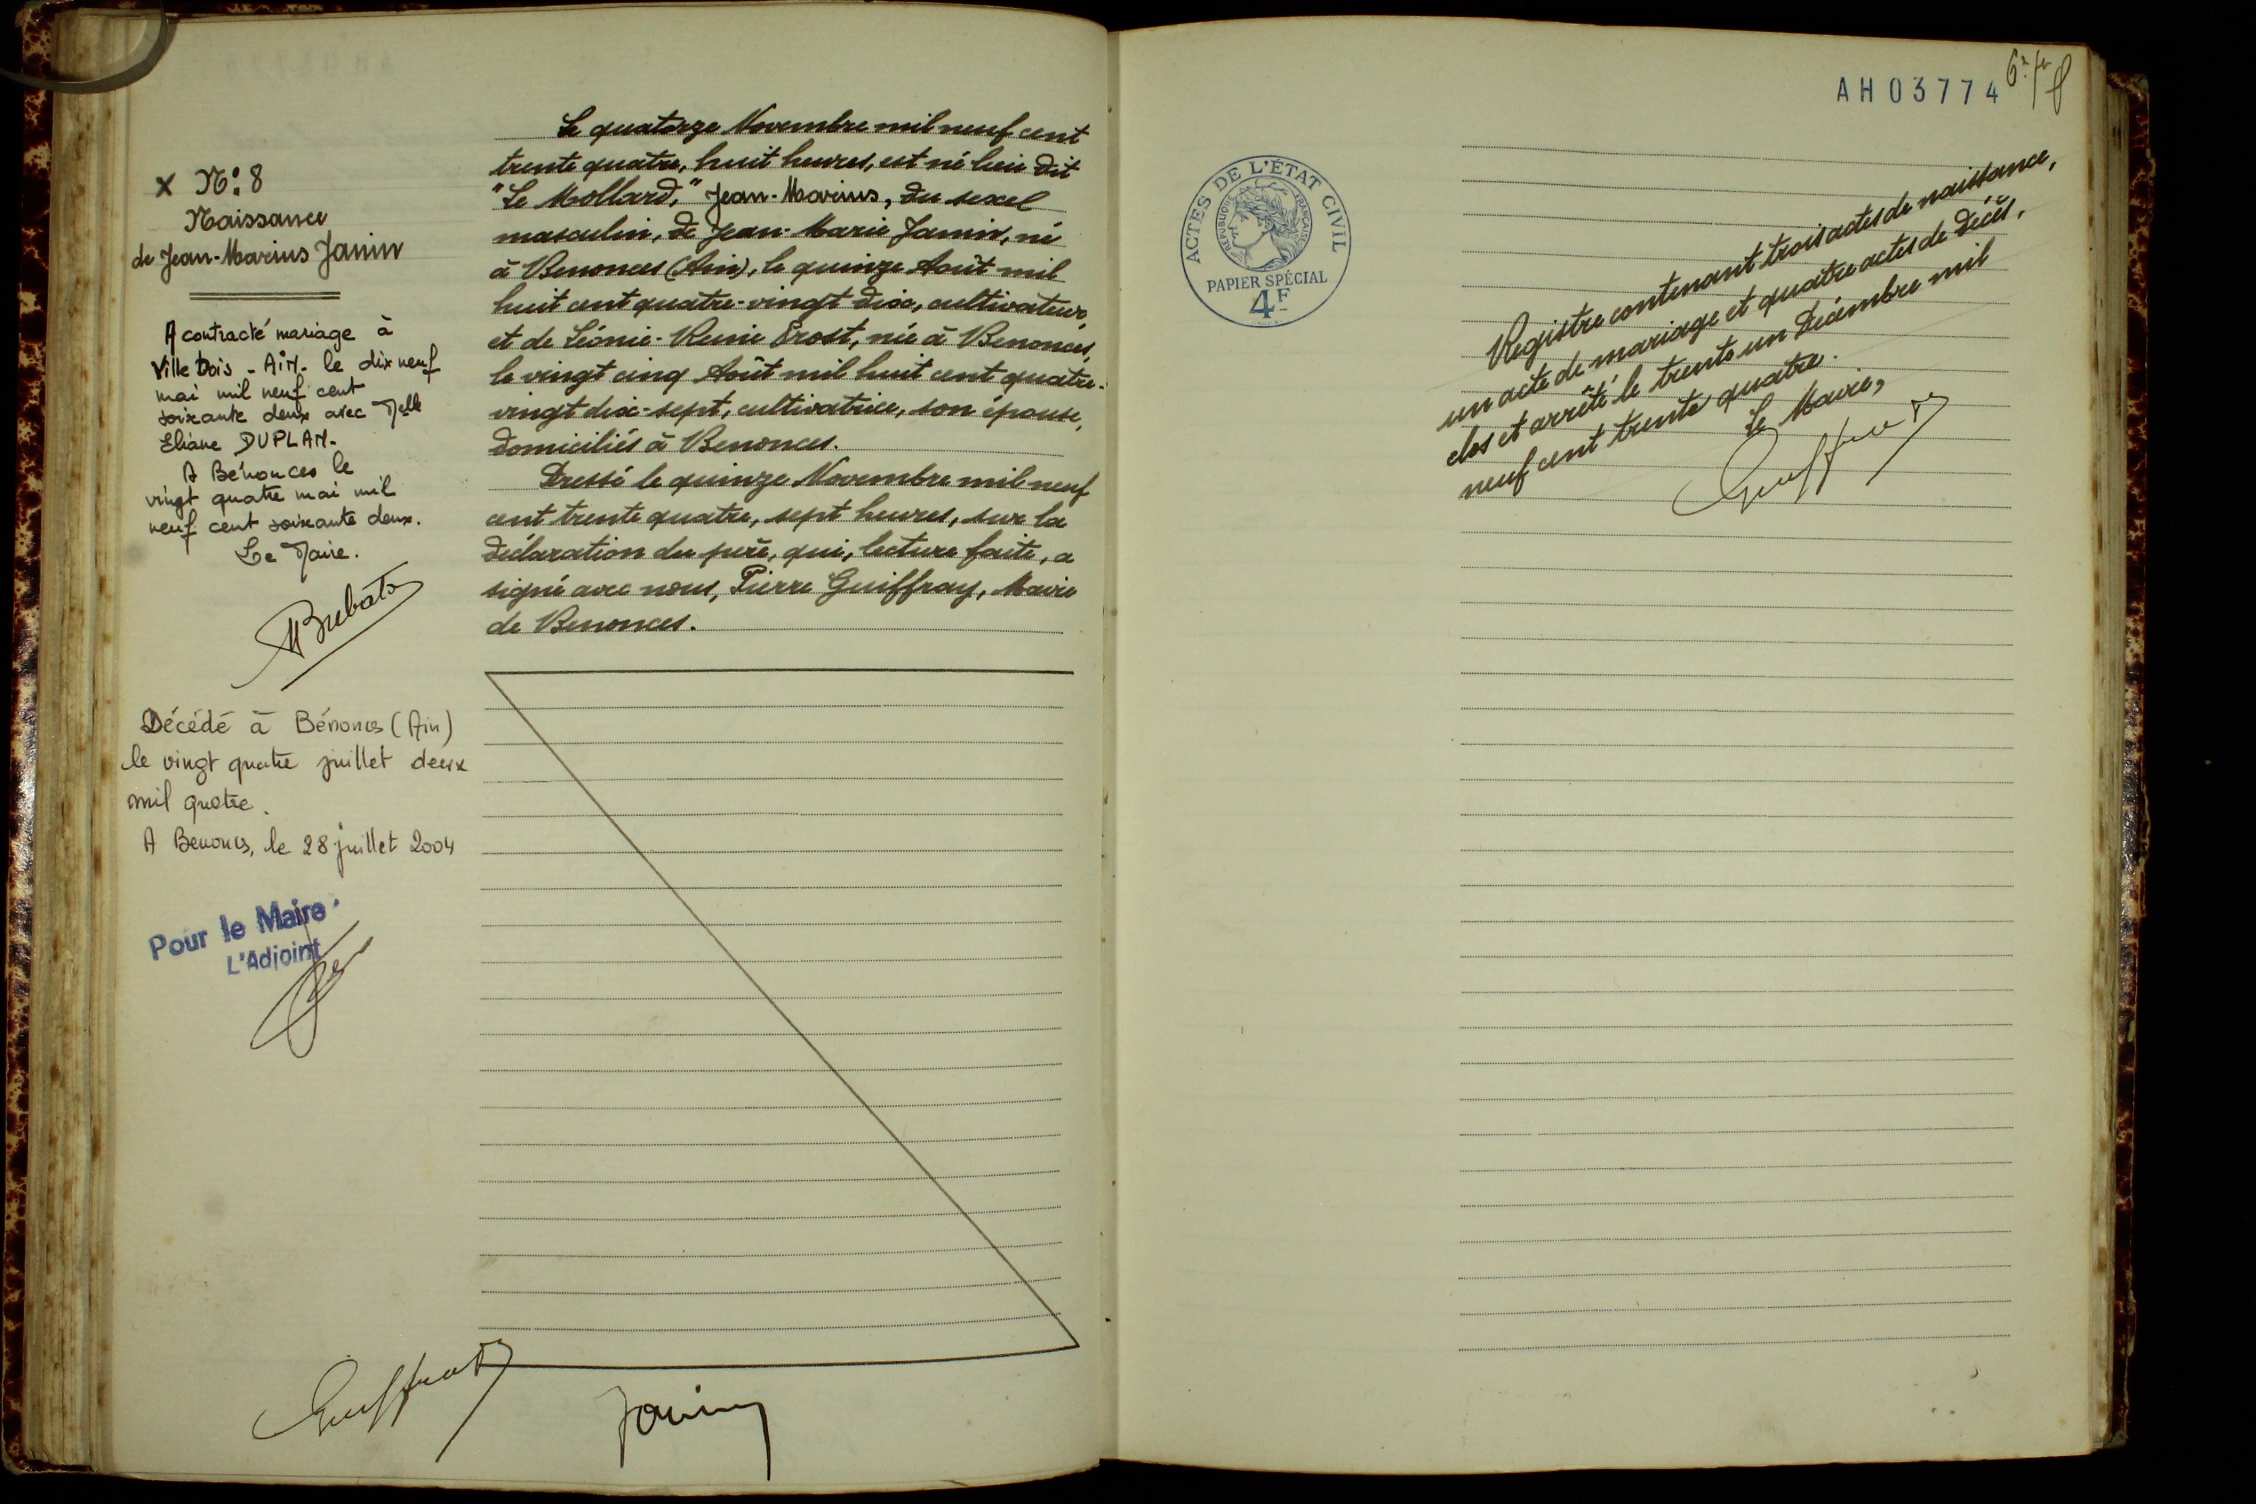 X N°: 8
Naissance
de Jean-Marius Janin
A contracté mariage à
Villebois - AiN - le dix neuf
mai mil neuf cent
soixante deux avec Melle
Eliane DUPLAN.
A Bénonces le
vingt quatre mai mil
neuf cent soixante deux.
Le Maire.
Décédé à Bénonces (Ain)
le vingt quatre juillet deux
mil quatre.
A Benonces, le 28 juillet 2004
Pour le Maire
L'Adjoint
Le quatorze Novembre mil neuf cent
trente quatre, huit heures, est né lieu dit
"Le Mollard," Jean-Marius, du sexe
masculin, de Jean-Marie Janin, né
à Benonces (Ain), le quinze Août mil
huit cent quatre-vingt dix, cultivateur,
et de Léonie-Renie Prost, née à Benonces,
le vingt cinq Août mil huit cent quatre-
vingt dix-sept, cultivatrice, son épouse,
domiciliés à Benonces.
Dressé le quinze Novembre mil neuf
cent trente quatre, sept heures, sur la
déclaration du père, qui, lecture faite, a
signé avec nous, Pierre Guiffray, Maire
de Benonces.
Guiffray
Janin
AH03774
ACTES DE L'ÉTAT CIVIL
RÉPUBLIQUE FRANÇAISE
PAPIER SPÉCIAL
4F
Registre contenant trois actes de naissance,
un acte de mariage et quatre actes de décès,
clos et arrêté le trente un Décembre mil
neuf cent trente quatre.
Le Maire,
Guiffray